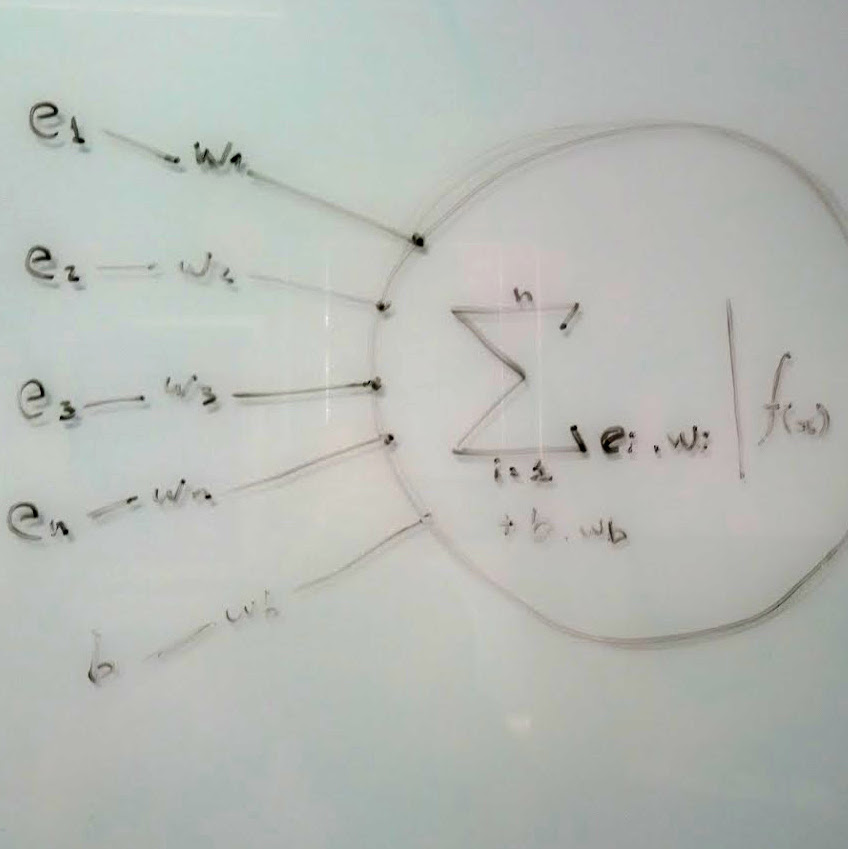 e1 w1
e2 w2
e3 w3
en wn
b wb
n
Σ ei . wi
i=1
+ b . wb
f(x)